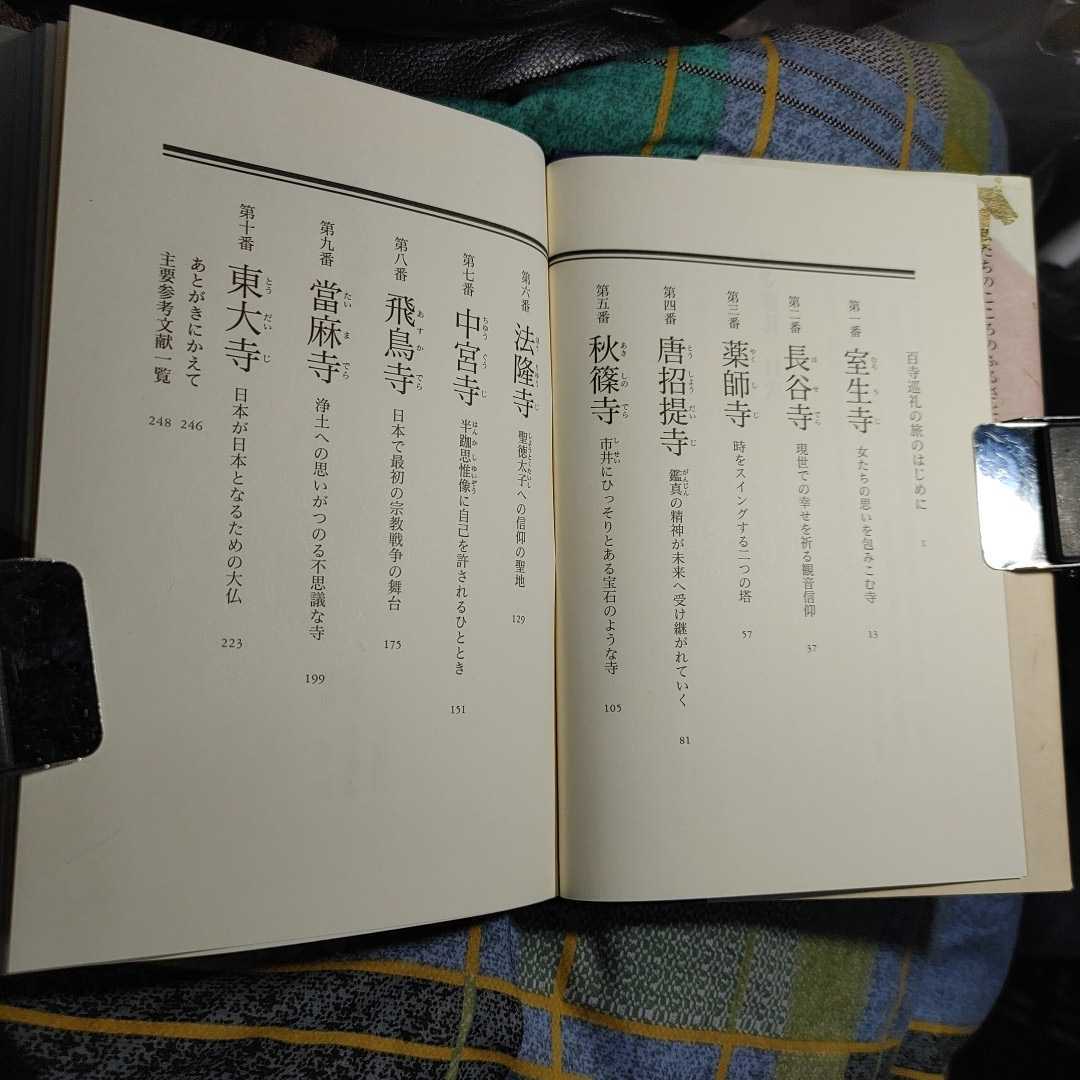 百寺巡礼の旅のはじめに
第一番 室生寺 女たちの思いを包みこむ寺 13
第二番 長谷寺 現世での幸せを祈る観音信仰 37
第三番 薬師寺 時をスイングする二つの塔 57
第四番 唐招提寺 鑑真の精神が未来へ受け継がれていく 81
第五番 秋篠寺 市井にひっそりとある宝石のような寺 105
第六番 法隆寺 聖徳太子への信仰の聖地 129
第七番 中宮寺 半跏思惟像に自己を許されるひととき 151
第八番 飛鳥寺 日本で最初の宗教戦争の舞台 175
第九番 當麻寺 浄土への思いがつのる不思議な寺 199
第十番 東大寺 日本が日本となるための大仏 223
あとがきにかえて 246
主要参考文献一覧 248
たちのこころのふるさ